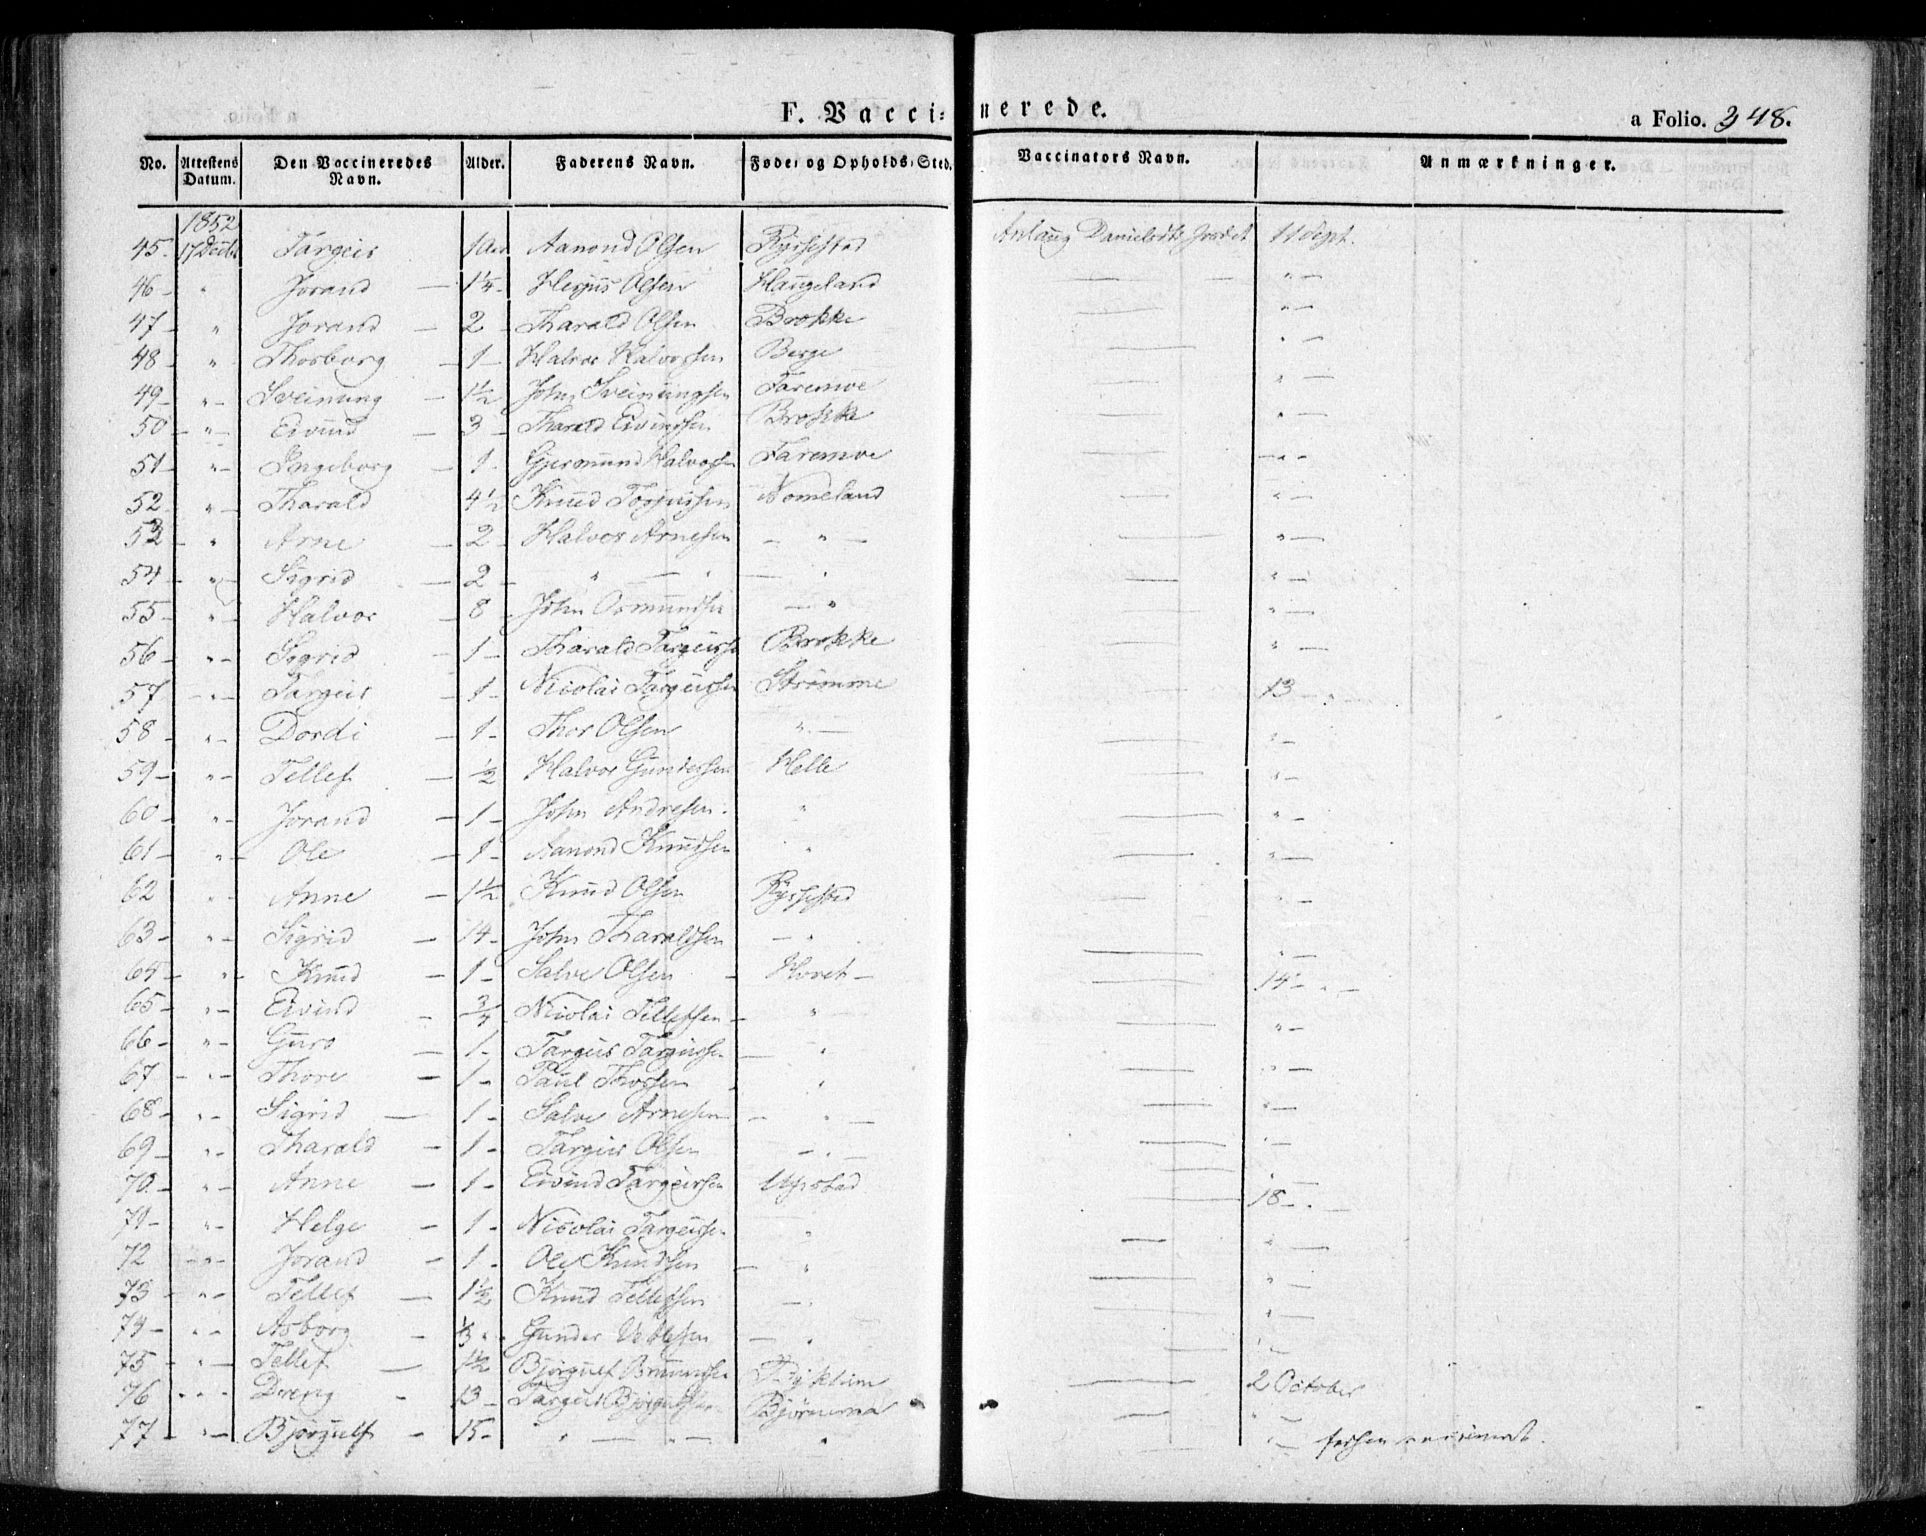 F. Vaccinerede.
a Folio. 348.
No. Attestens Datum. Den Vaccineredes Navn. Alder. Faderens Navn. Føde- og Opholds-Sted. Vaccinators Navn. Anmærkninger.
1852
45. 17 Decbr Targeis 1 Aar Aanond Olsen Rysstad Aslaug Danielsdtr 11 Sept.
46 - " Jorand - 1¼ - Olsen Haugeland — " -
47 - " Jorand - 2 - Tharald Olsen Brokke — " -
48 - " Thorborg - 1 - Halvor Halvorsen Berge — " -
49 - " - Sveinung - 1½ John Sveinungsen — " -
50 - " - Eivind - 3 - Tharald Eivindsen Brokke — " -
51 - " - Ingeborg - 1 - Gjermund Halvorsen — " -
52 - " - Tharald 4½ Knud Torjussen Nomeland — " -
53 - " Arne - 2 - Halvor Arnesen - " - — " -
54 - " - Sigrid - 2 - " - " - " — " -
55 - " - Halvor - 8 John Osmundsen - " — " -
56 - " - Sigrid - 1 - Tharald Targeissen Brokke — " -
57 - " - Targeis - 1 - Nicolai Targeissen Strømme — 13 - "
58 - " - Dordi - 1 - Thor Olsen " - — " -
59 - " - Tellef - ½ Halvor Gundersen Helle — " -
60 - " - Jorand - 1 - John Andresen " — " -
61 - " - Ole - 1 - Aanond Knudsen " — " -
62 " - Anne - 1½ Knud Olsen Rysstad — " -
63 - " - Sigrid - 14 - John Tharaldsen - " — " -
64 - " - Knud - 1 - Salve Olsen - — 14 - " -
65 - " - Eivind - ¾ Nicolai Tellefsen - " — " -
66 - " - Guro - 1 - Targeis Targeissen - " — " -
67 - " - Thore - 1 - Paul Thorsen " — " -
68 - " - Sigrid - 1 - Salve Arnesen - " — " -
69 - " - Tharald - 1 - Targeis Olsen - " - — " -
70 - " - Anne - 1 - Eivind Targeissen — " -
71 - " - Helge - 1 - Nicolai Targeissen " — 18 - " -
72 - " - Jorand - 1 - Ole Knudsen - " — " -
73 - " - Tellef - 1½ Knud Tellefsen - " — " -
74 - " - Asborg - ⅓ " - Gunder - " — " -
75 - " - Tellef - 1½ Bjørgulf — " -
76 " - " Dreng - 13 - Targeis Bjørgulfsen — 2 October
77 - " - Bjørgulf - 15 - " - " - " — " -